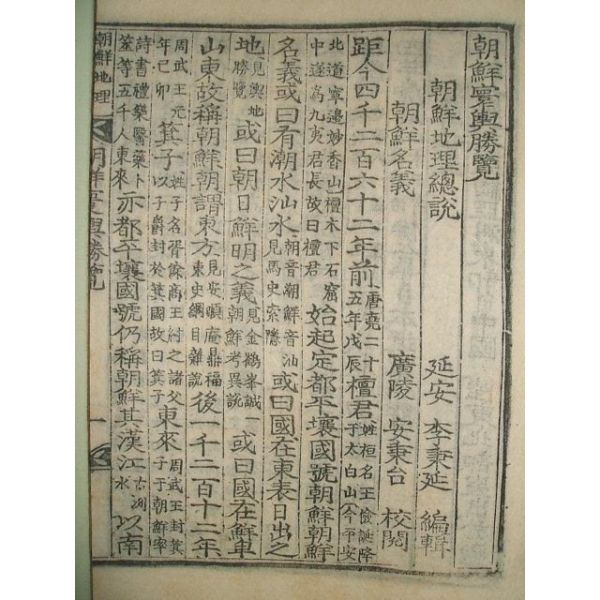 朝鮮寰輿勝覽
朝鮮地理總說 延安 李秉延 編輯
朝鮮名義 廣陵 安秉台 校閱
距今四千二百六十二年前 唐堯二十五年戊辰 檀君 姓桓名王儉誕降于太白山今平安
北道寧邊妙香山檀木下石窟中遂爲九夷君長故曰檀君 始起定都平壤國號朝鮮朝鮮
名義或曰有潮水汕水 朝音潮鮮音汕見馬史索隱 或曰國在東表日出之
地 見輿地勝覽 或曰朝日鮮明之義 見金鶴峯誠朝鮮考異說 或曰國在鮮卑
山東故稱朝鮮朝謂東方 見安順庵鼎福東史綱目雜說 後一千二百十二年
周武王元年己卯 箕子 姓子名胥餘商王紂之諸父以子爵封於箕國故曰箕子 東來 周武王封箕子于朝鮮率
詩書禮樂醫藥卜筮等五千人東來 亦都平壤國號仍稱朝鮮其漢江 古洌水 以南
朝鮮地理 朝鮮寰輿勝覽 一